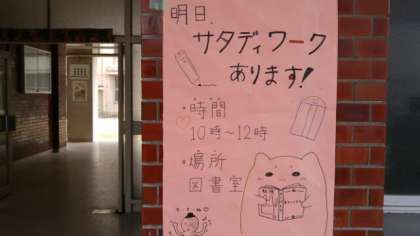 明日、
サタディワーク
あります!
・時間
10時～12時
・場所
図書室